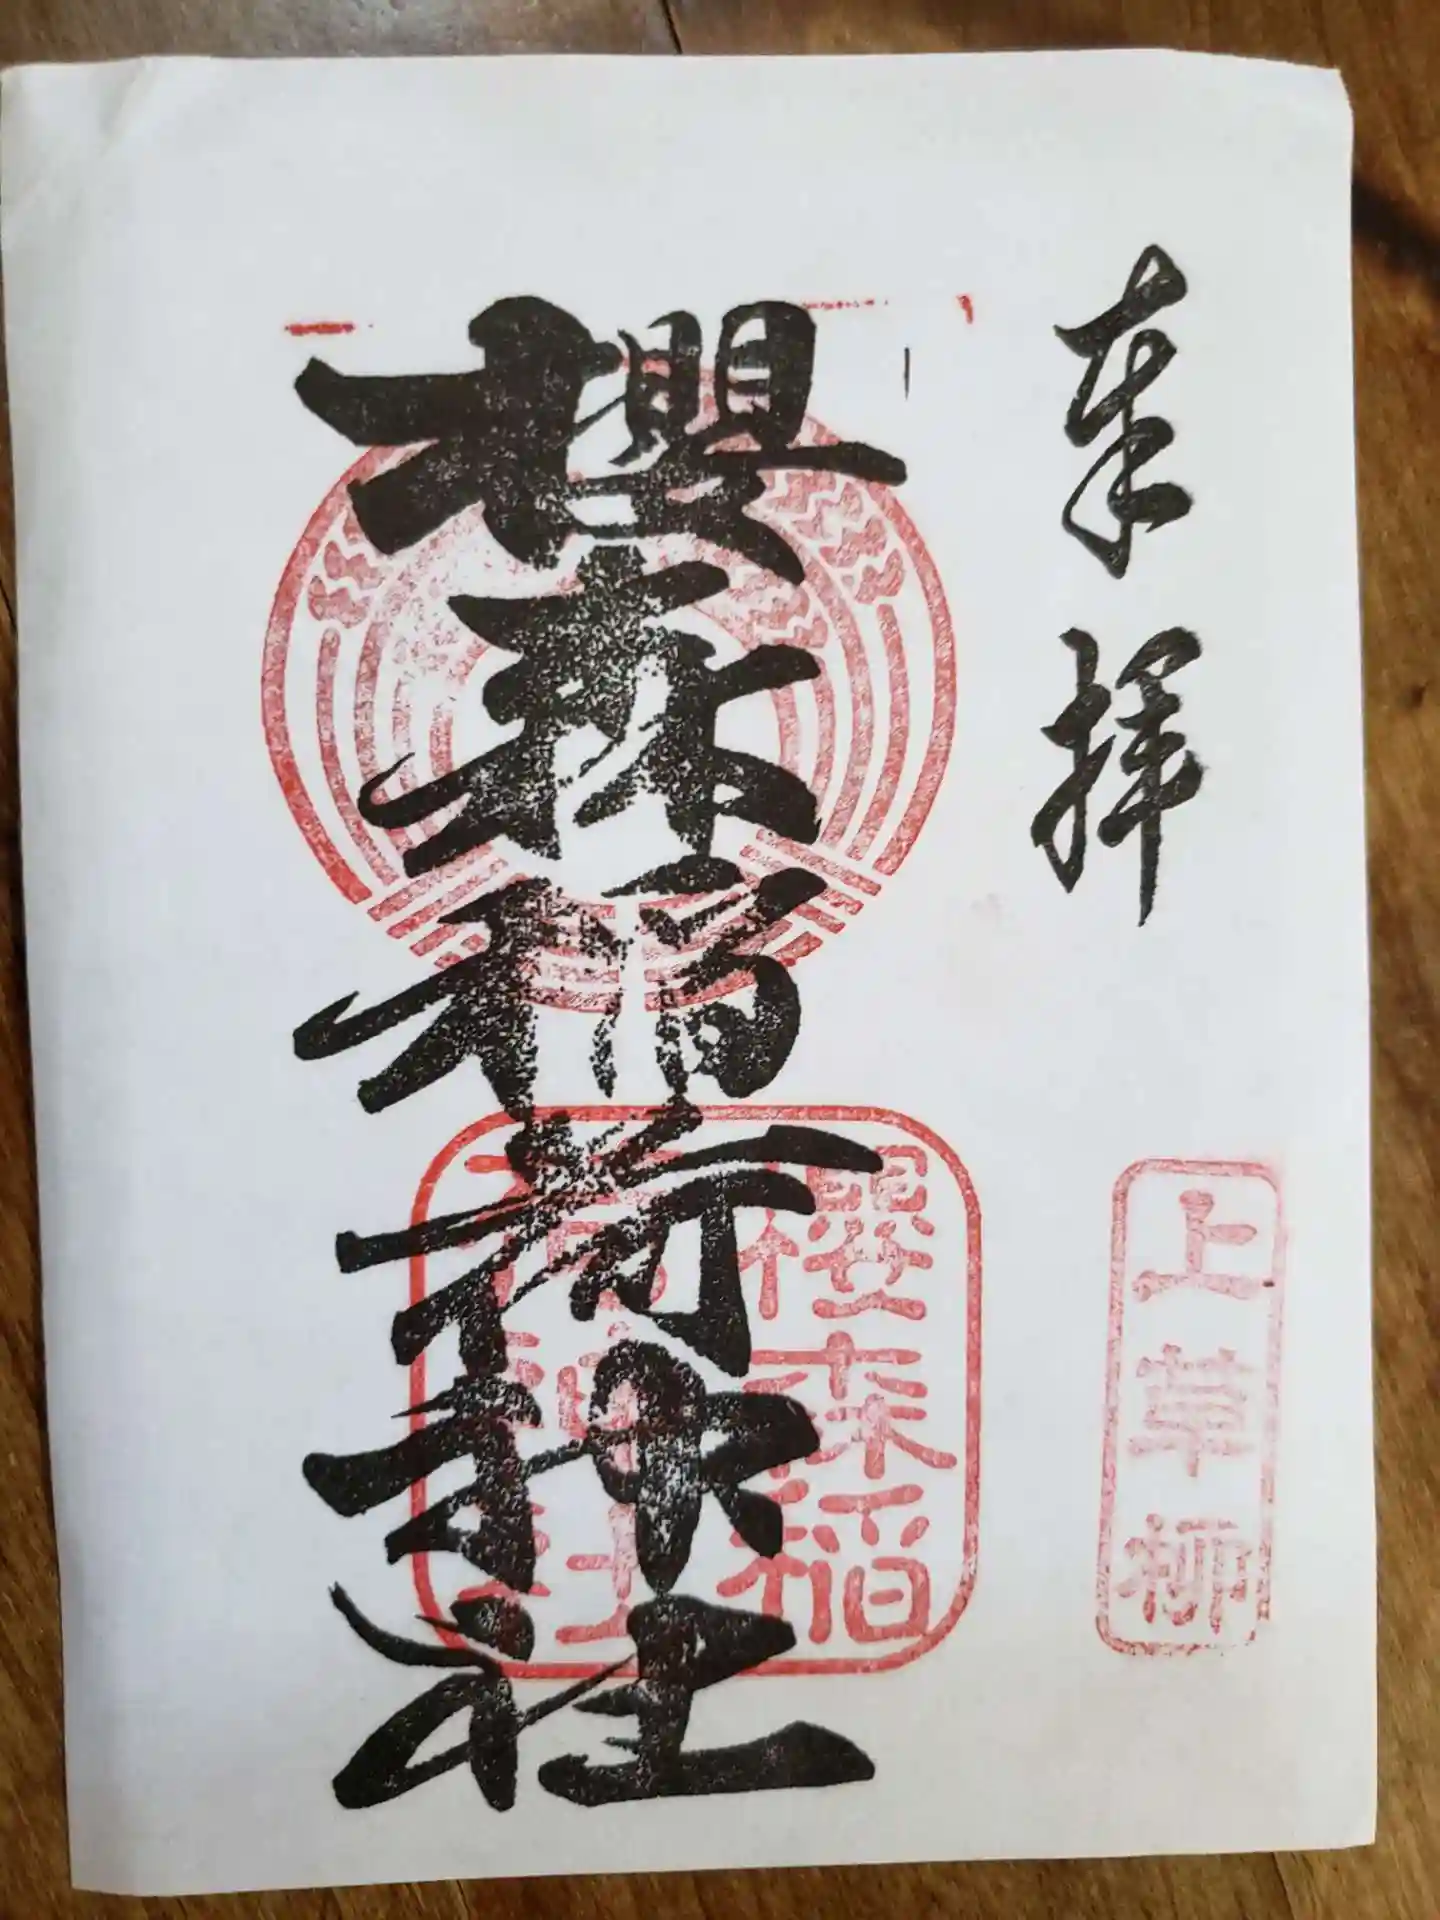 奉拝
上草柳
櫻森稲荷神社
櫻森稲
荷神社